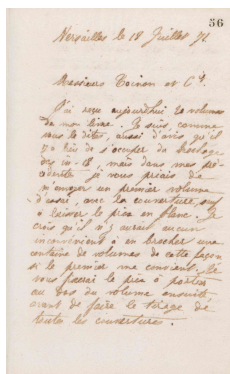 56
Versailles le 18 Juillet 71.
Messieurs Toinon et Cie.
J'ai reçu aujourd'hui 20 volumes
de mon livre. Je suis, comme
vous le dites, aussi d'avis qu'il
de s'occuper du brochage
des in-8, mais dans mes
je vous priais de
m'envoyer un premier volume
d'essai, avec la couverture, sauf
à laisser le prix en blanc. Je
crois qu'il n'y aurait aucun
inconvénient à en brocher une
centaine de volumes de cette façon
si le premier me convient. Je
vous fixerai le prix à porter
au dos du volume ensuite
avant de faire le tirage de
toutes les couvertures.